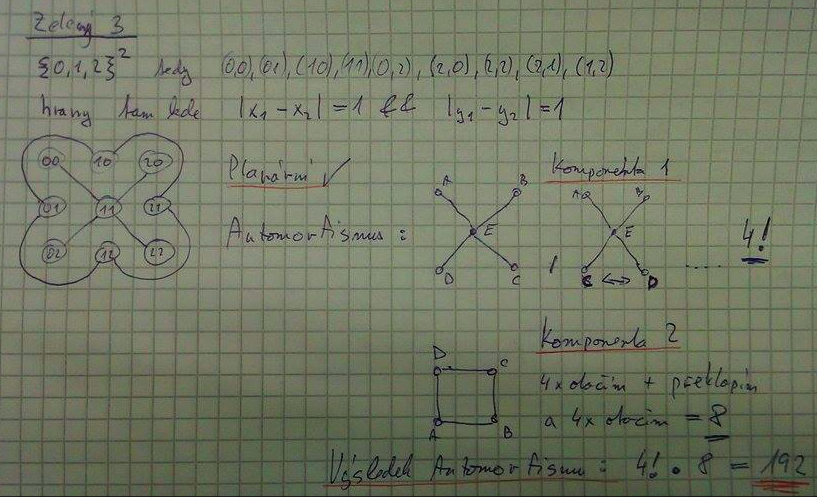 Zelený 3
{0,1,2}² tedy (0,0), (0,1), (1,0), (1,1) (0,2), (2,0), (2,2), (2,1), (1,2)
hrany tam kde |x₁ - x₂| = 1 && |y₁ - y₂| = 1
00 10 20
01 11 21
02 12 22
Planární ✓
Automorfismus :
A B
E
D C
Komponenta 1
A B
E
C ↔ D
.... 4!
Komponenta 2
D C
A B
4x otočím + překlopím
a 4x otočím = 8
Výsledek Automorfismu : 4! · 8 = 192